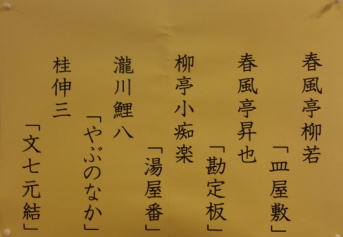 春風亭柳若
「皿屋敷」
春風亭昇也
「勘定板」
柳亭小痴楽
「湯屋番」
瀧川鯉八
「やぶのなか」
桂伸三
「文七元結」